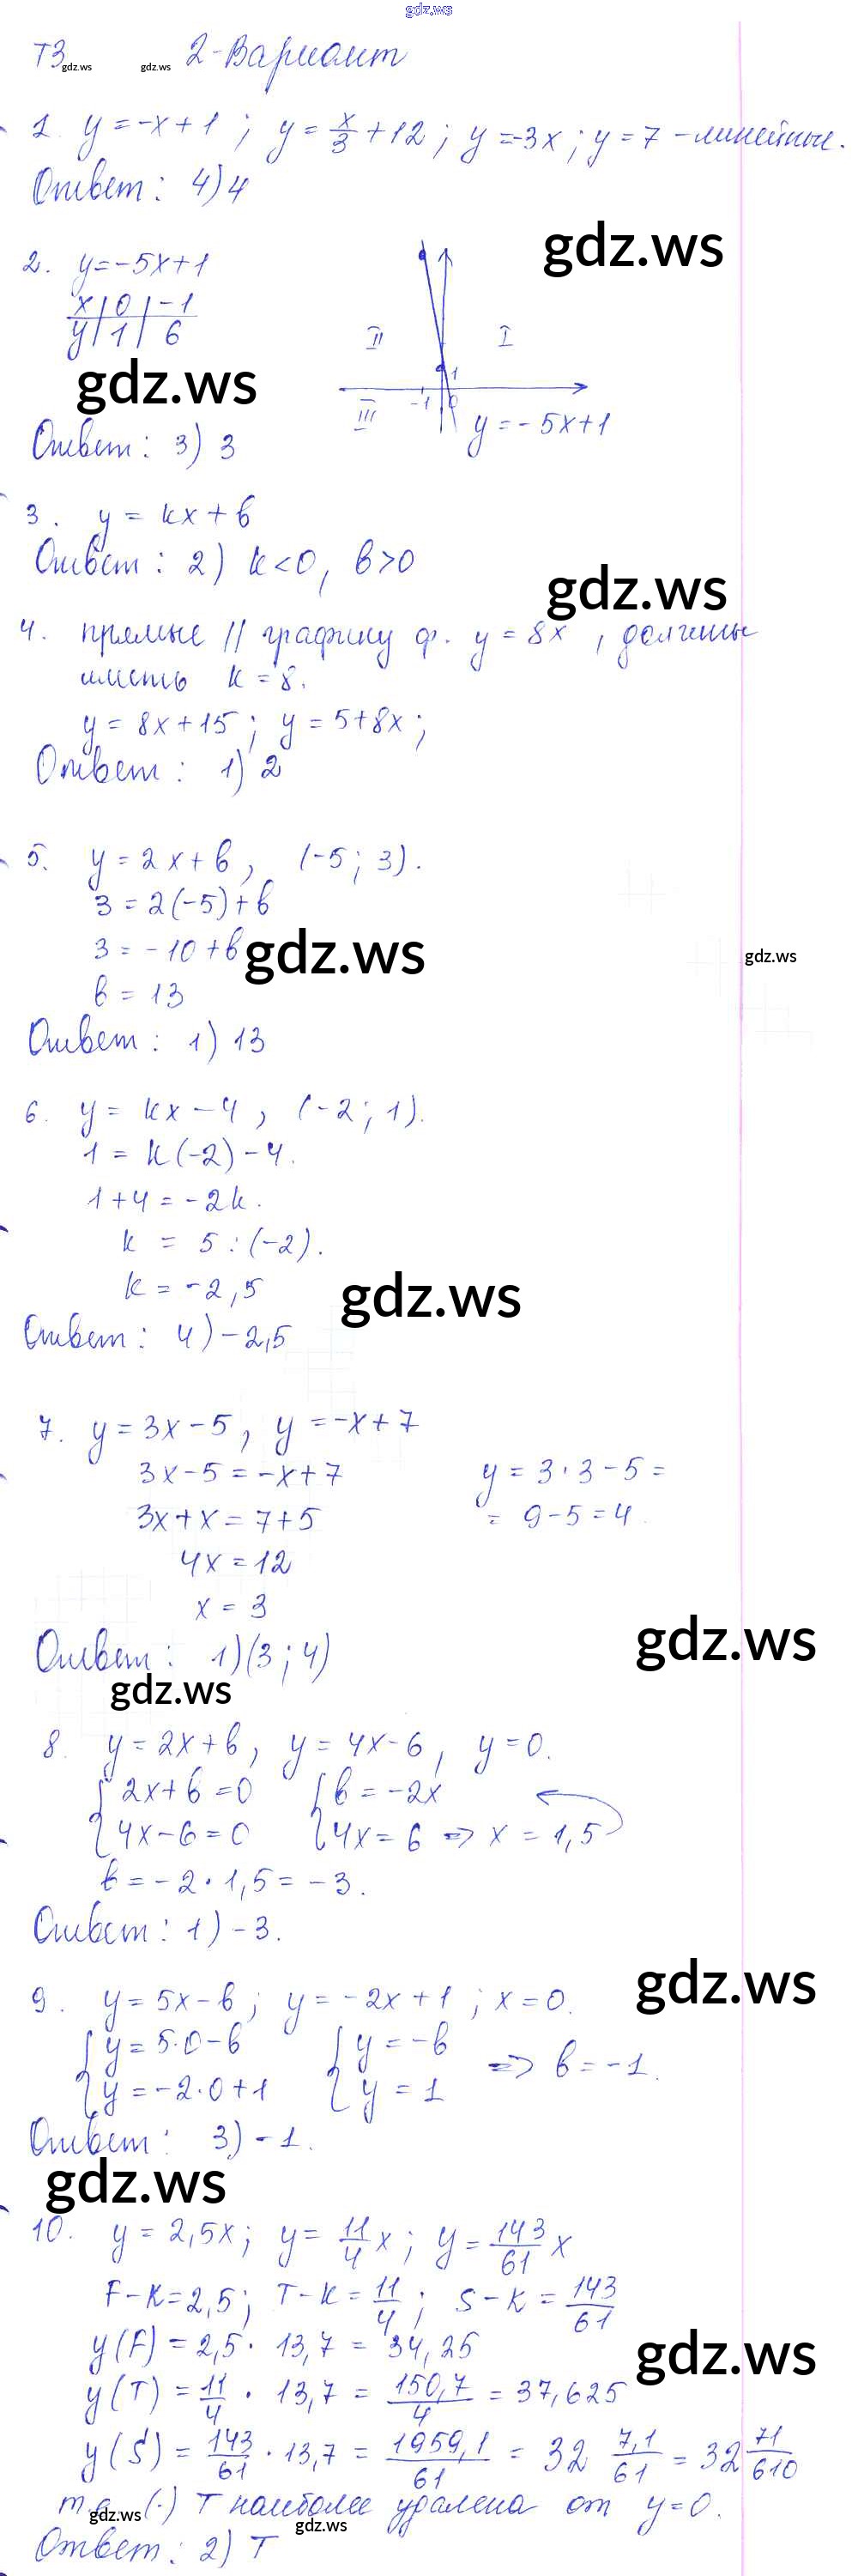 gdz.ws
Т3 gdz.ws gdz.ws 2-Вариант
1. y = -x + 1 ; y = x/3 + 12 ; y = -3x ; y = 7 - линейные.
Ответ: 4) 4
gdz.ws
2. y = -5x + 1
x | 0 | -1
y | 1 | 6
II I
gdz.ws
III -1 0 1
y = -5x + 1
Ответ: 3) 3
3. y = kx + b
Ответ: 2) k < 0, b > 0
gdz.ws
4. прямые // графику ф. y = 8x , должны
иметь k = 8.
y = 8x + 15 ; y = 5 + 8x ;
Ответ: 1) 2
5. y = 2x + b , (-5 ; 3).
3 = 2(-5) + b
3 = -10 + b gdz.ws
gdz.ws
b = 13
Ответ: 1) 13
6. y = kx - 4 , (-2 ; 1).
1 = k(-2) - 4.
1 + 4 = -2k.
k = 5 : (-2).
k = -2,5
gdz.ws
Ответ: 4) -2,5
7. y = 3x - 5 , y = -x + 7
3x - 5 = -x + 7 y = 3 · 3 - 5 =
3x + x = 7 + 5 = 9 - 5 = 4.
4x = 12
x = 3
gdz.ws
Ответ: 1) (3 ; 4)
gdz.ws
8. y = 2x + b , y = 4x - 6 , y = 0.
{ 2x + b = 0 { b = -2x
{ 4x - 6 = 0 { 4x = 6 => x = 1,5
b = -2 · 1,5 = -3.
Ответ: 1) -3.
gdz.ws
9. y = 5x - b ; y = -2x + 1 ; x = 0.
{ y = 5·0 - b { y = -b => b = -1.
{ y = -2·0 + 1 { y = 1
Ответ: 3) -1.
gdz.ws
10. y = 2,5x ; y = 11/4 x ; y = 143/61 x
F - K = 2,5 ; T - K = 11/4 ; S - K = 143/61
y(F) = 2,5 · 13,7 = 34,25
gdz.ws
y(T) = 11/4 · 13,7 = 150,7/4 = 37,625
y(S) = 143/61 · 13,7 = 1959,1/61 = 32 7,1/61 = 32 71/610
(·) T наиболее удалена от y = 0.
gdz.ws gdz.ws
Ответ: 2) T